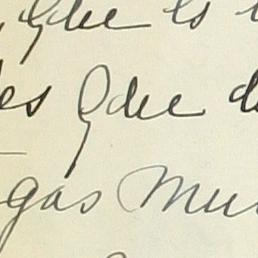 que es
es que d
gas mu